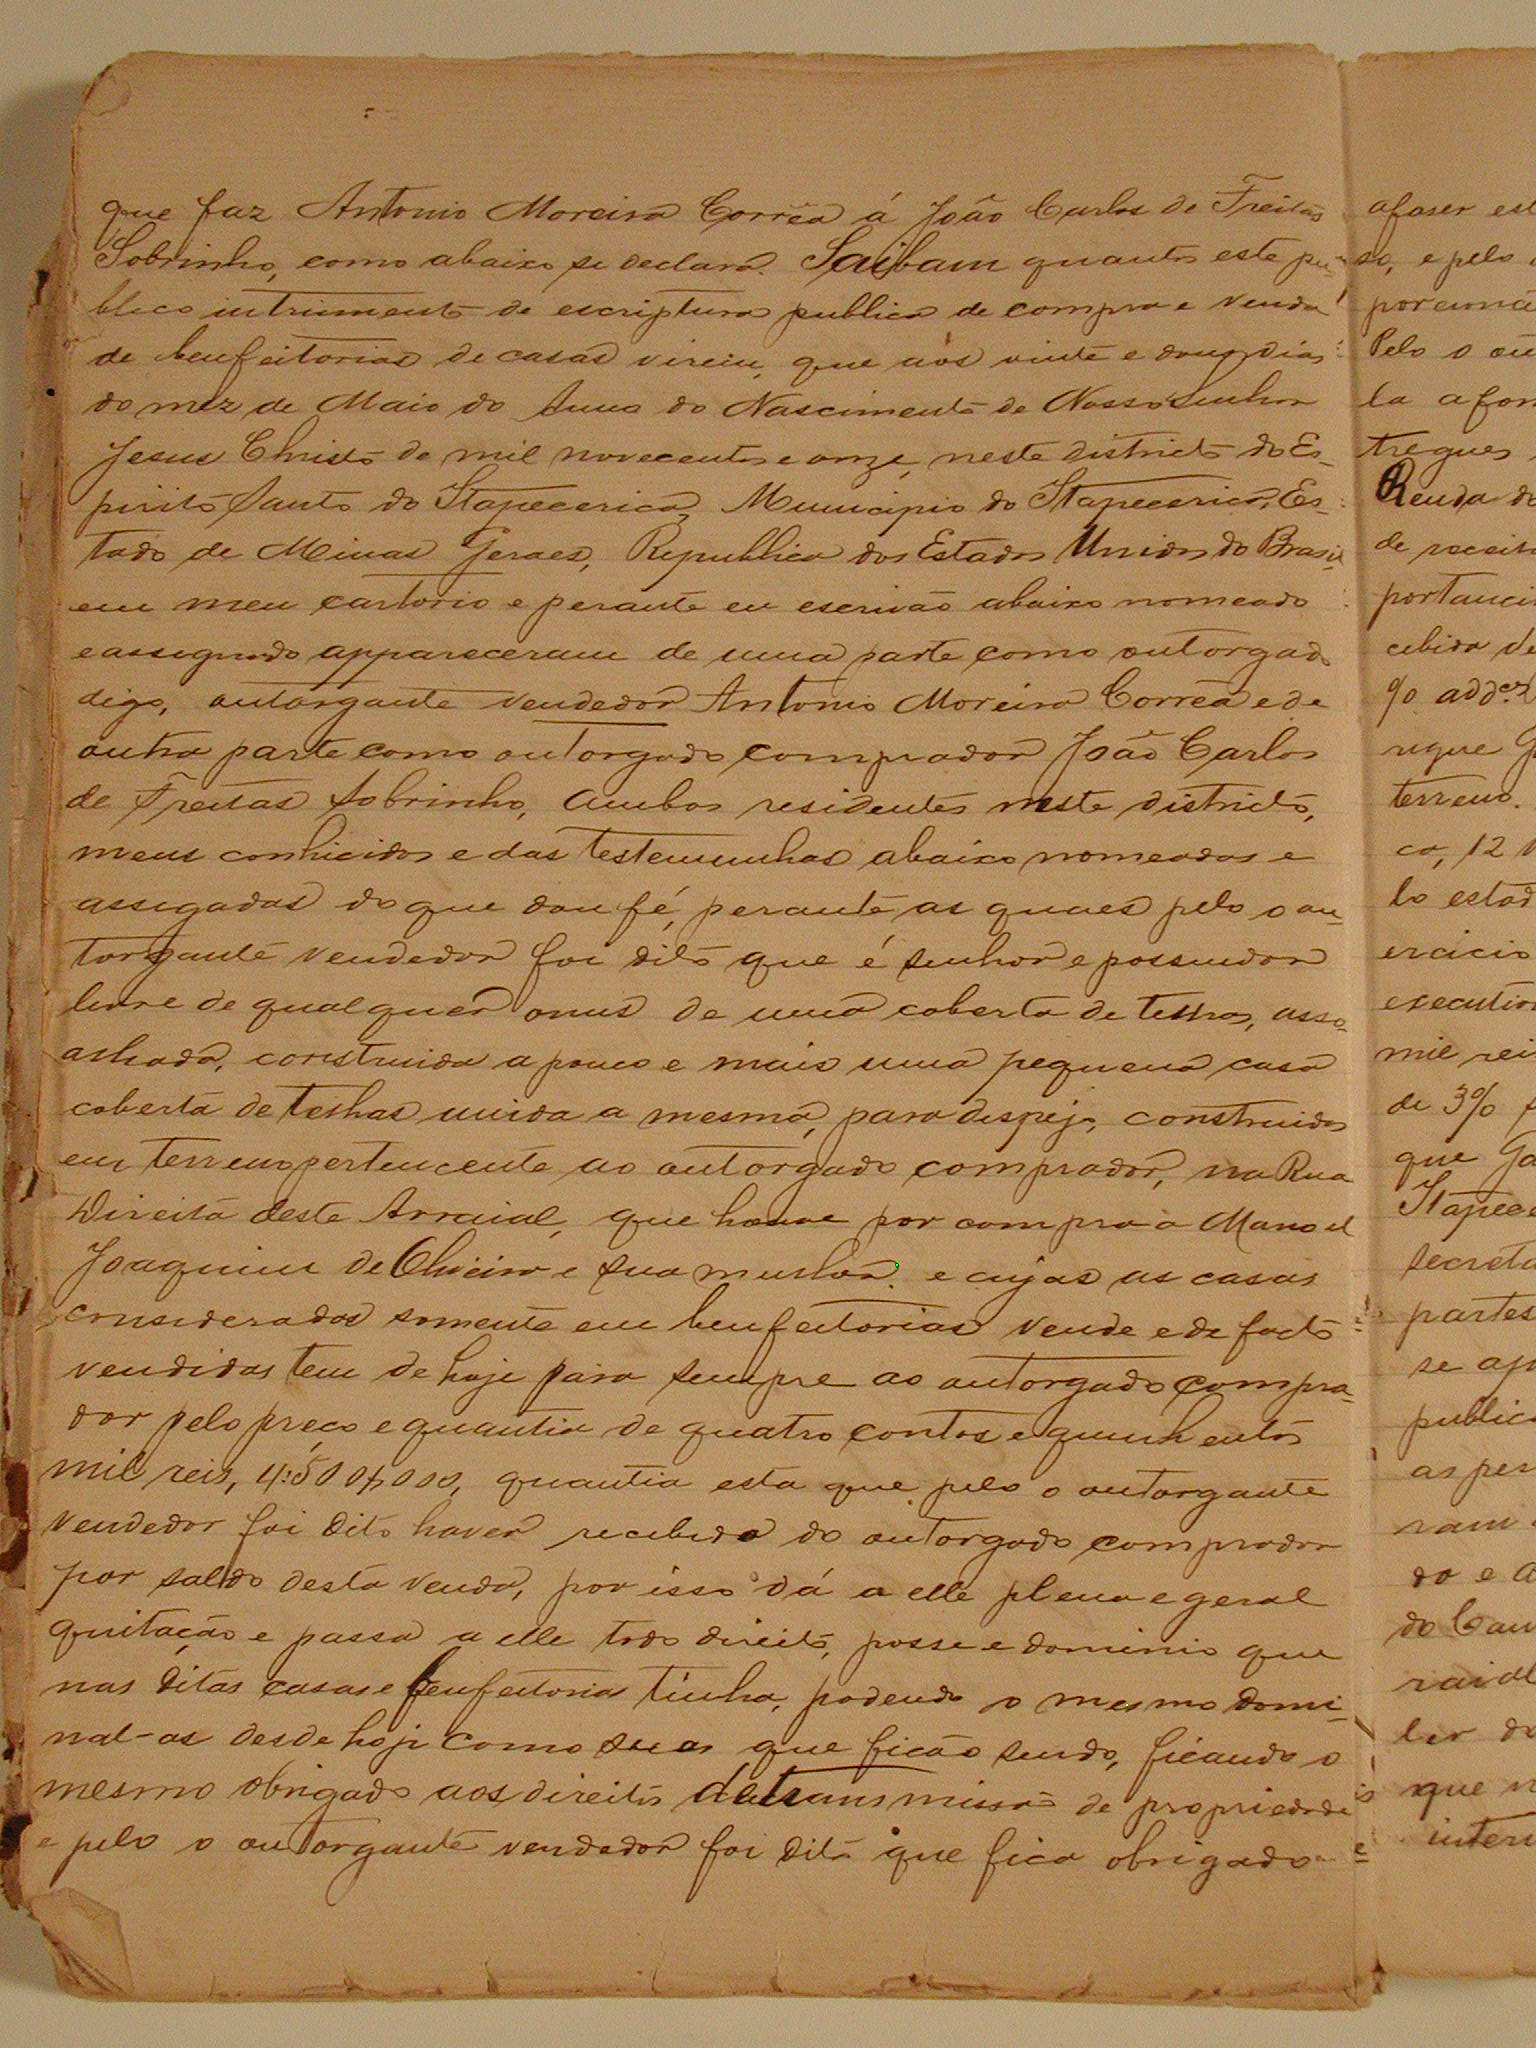 que faz Antonio Moreira Corrêa á João Carlos de Freitas
Sobrinho, como abaixo se declara. Saibam quantos este pu-
blico intrumento de escriptura publica de compra e venda
de benfeitorias de casas virem, que aos vinte e dous dias
do mez de Maio do Anno do Nascimento de Nosso Senhor
Jesus Christo de mil novecentos e onze, neste districto do Es-
pirito Santo do Itapecerica, Municipio do Itapecerica, Es-
tado de Minas Geraes, Republica dos Estados Unidos do Brasil
em meu cartorio e perante eu escrivão abaixo nomeado
e assignado appareceram de uma parte como outorgado
digo, outorgante vendedor Antonio Moreira Corrêa e de
outra parte como outorgado comprador João Carlos
de Freitas Sobrinho, ambos residentes neste districto,
meus conhecidos e das testemunhas abaixo nomeadas e
assigadas do que dou fé, perante as quaes pelo o ou-
torgante vendedor foi dito que é senhor e possuidor
livre de qualquer onus de uma coberta de telhas, asso-
alhada, construida a pouco e mais uma pequena casa
coberta de telhas unida a mesma, para despejo, construidas
em terreno pertencente ao outorgado comprador, na Rua
Direita deste Arraial, que houve por compra a Manoel
Joaquim de Oliveira e sua mulher. e cujas as casas
consideradas somente em benfeitorias vende e de facto
vendidas tem de hoje para sempre ao outorgado compra-
dor pelo preço e quantia de quatro contos e quinhentos
mil reis, 4:500$000, quantia esta que pelo o outorgante
vendedor foi dito haver recebido do outorgado comprador
por saldo desta venda, por isso dá a elle plena e geral
quitação e passa a elle todo direito, posse e dominio que
nas ditas casas e benfeitorias tinha, podendo o mesmo domi-
nal-as desde hoje como suas que ficão sendo, ficando o
mesmo obrigado aos direitos de transmissão de propriedade
e pelo o outorgante vendedor foi dito que fica obrigado
afaser est
so, e pelo
Pelo o ou
la a
tregues
Renda do
de
portanci
cebida de
% add.es
rique G
terreno.
ca, 12
lo estad
ercicio
executiv
mil reis
de 3%
que Ga
Itapece
secreta
partes
se ap
publica
as per
ram
do e a
do Cam
raial
ler do
que